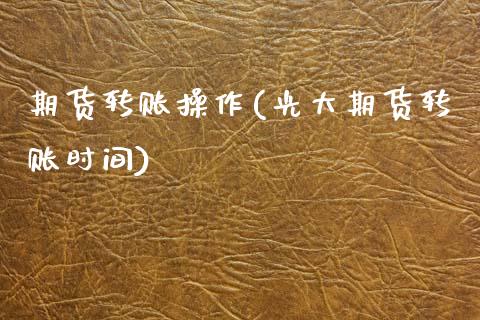 期货转账操作(光大期货转
账时间)